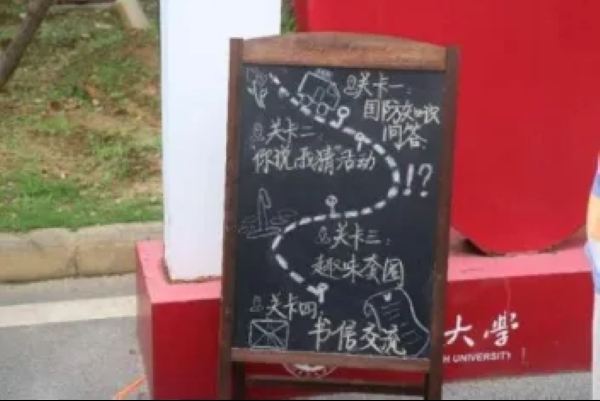 关卡一:
国防知识
问答
关卡二:
你说我猜活动
!?
关卡三:
趣味套圈
关卡四:
书信交流
大学
H UNIVERSITY